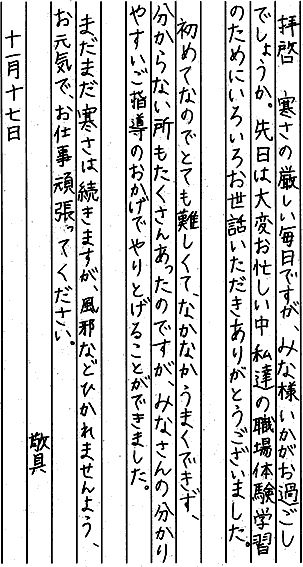 拝啓　寒さの厳しい毎日ですが、みな様いかがお過ごし
でしょうか。先日は大変お忙しい中私達の職場体験学習
のためにいろいろお世話いただきありがとうございました。
初めてなのでとても難しくて、なかなかうまくできず、
分からない所もたくさんあったのですが、みなさんの分かり
やすいご指導のおかげでやりとげることができました。
まだまだ寒さは続きますが、風邪などひかれませんよう、
お元気で、お仕事頑張ってください。
敬具
十一月十七日